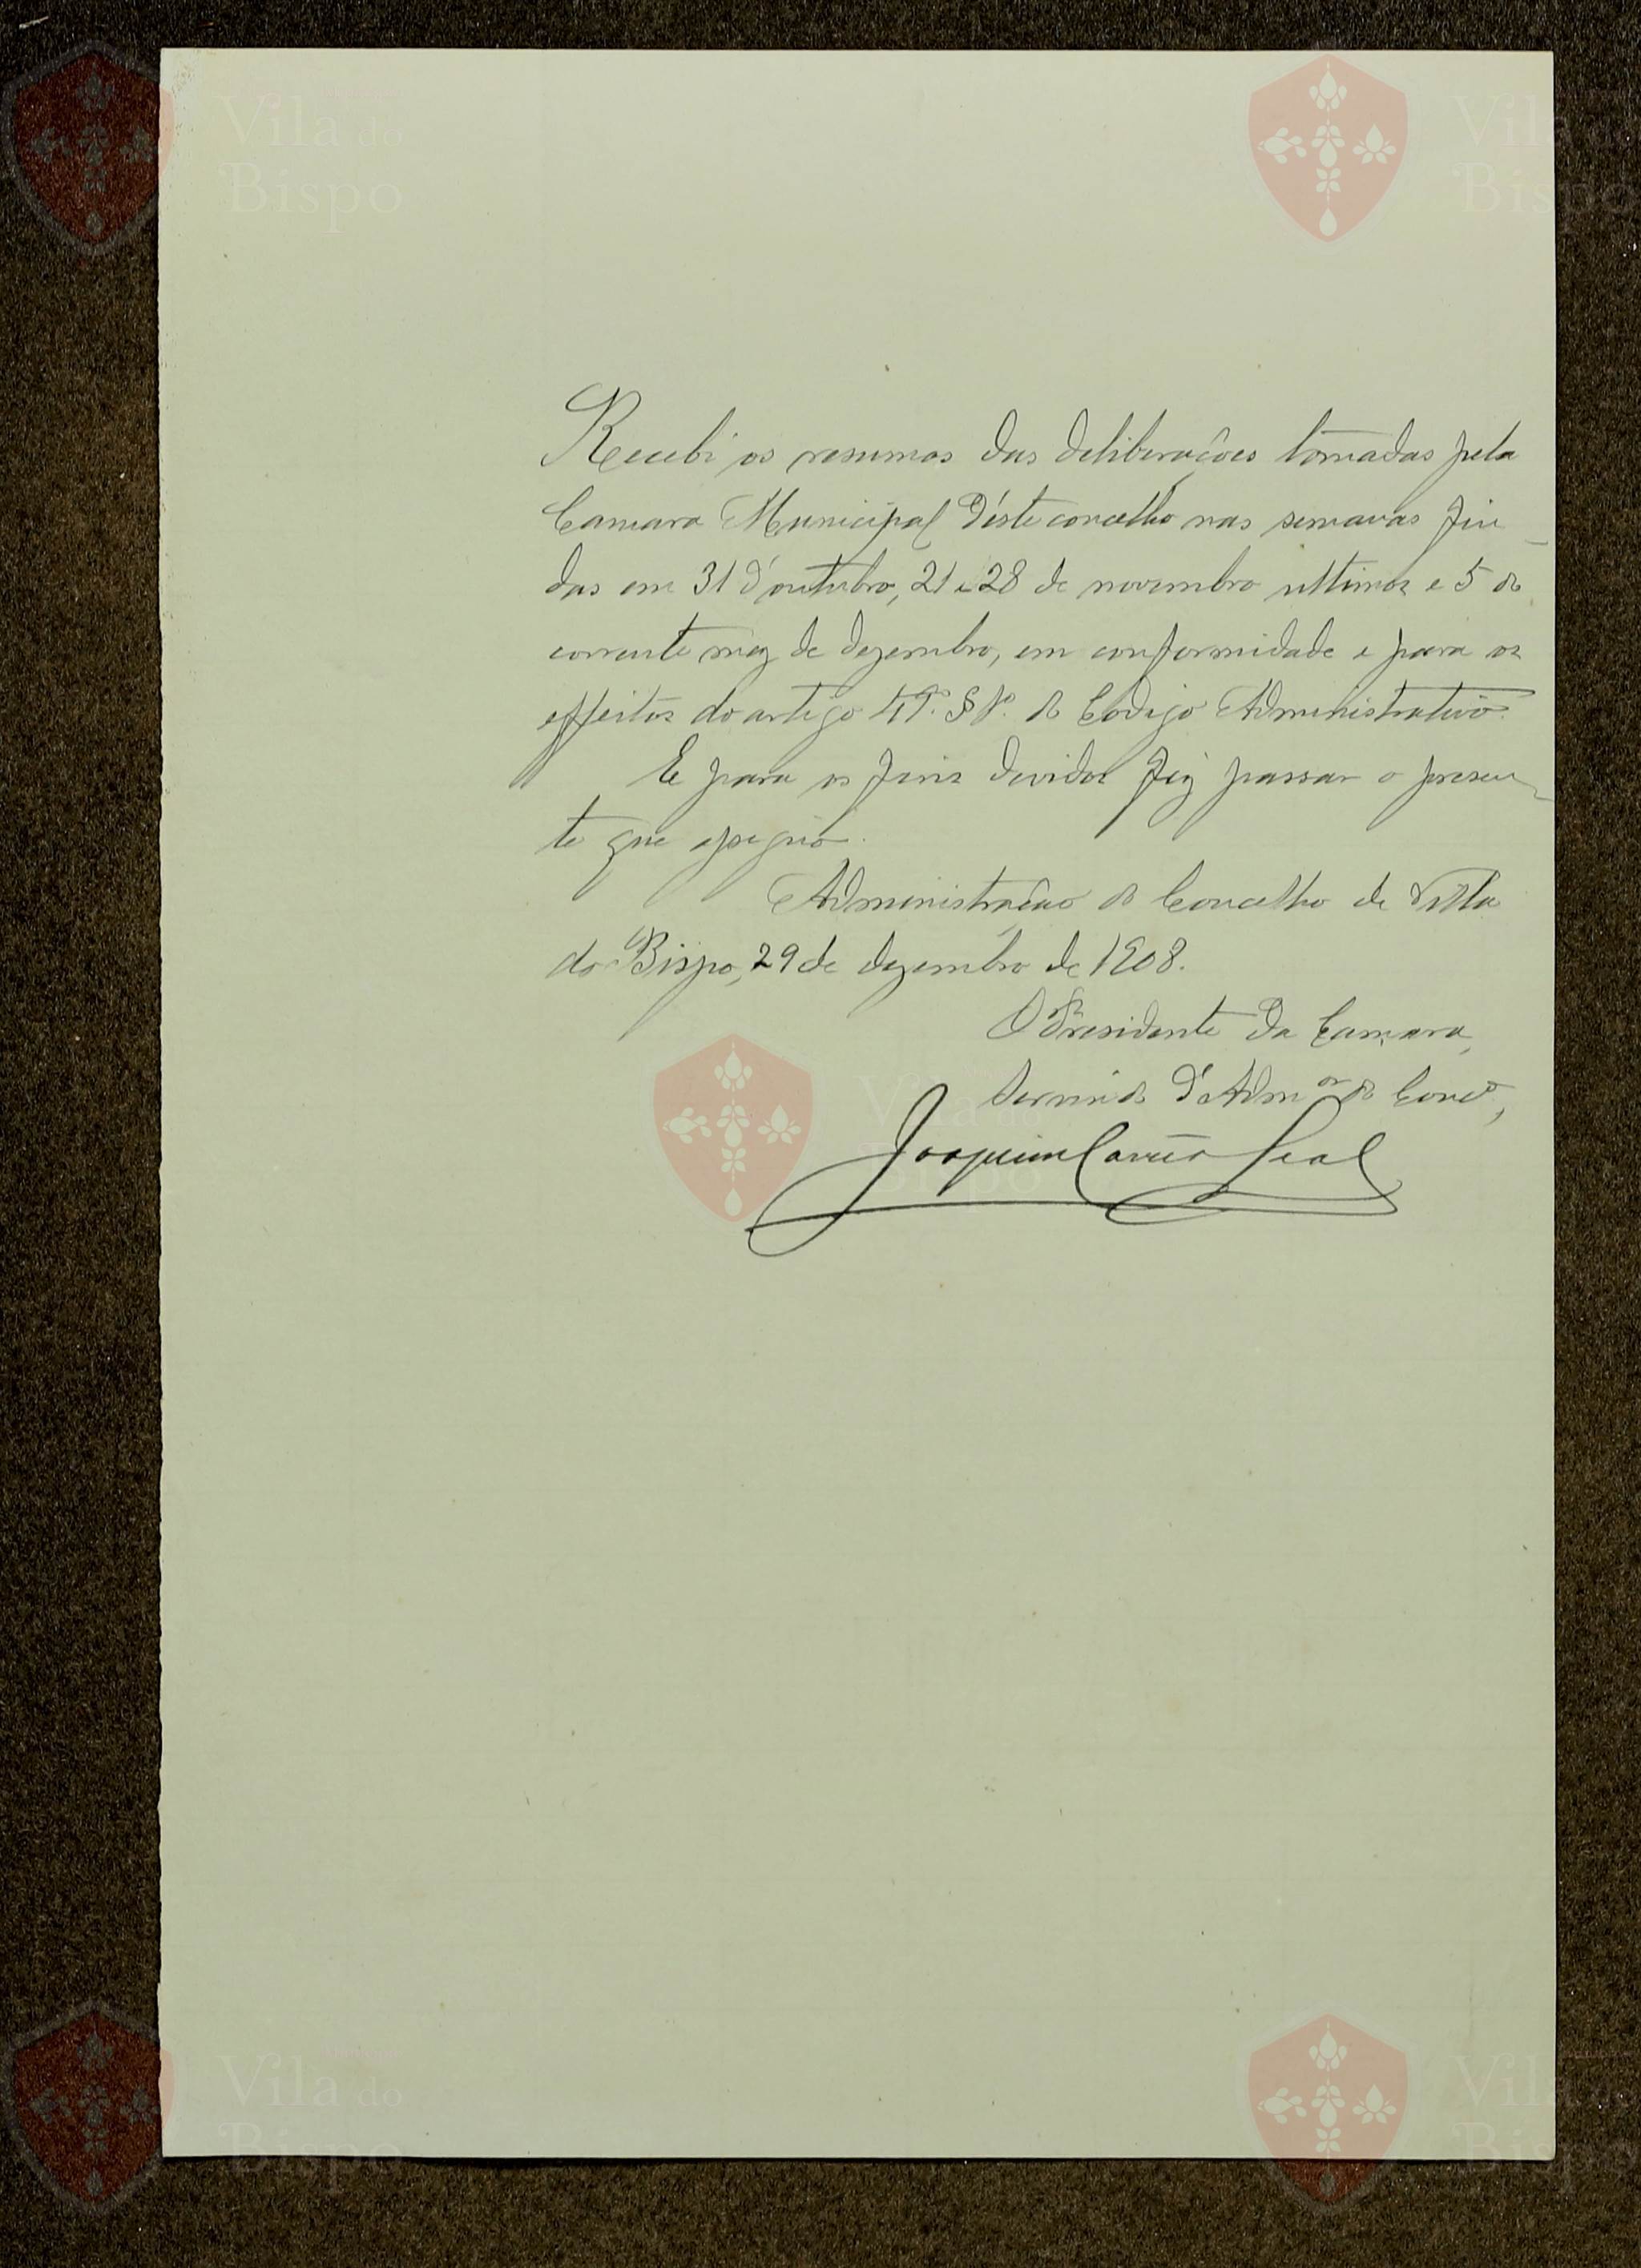 Recebi os resumos das deliberações tomadas pela
Camara Municipal d'este concelho nas semanas fin-
das em 31 d'outubro, 21 e 28 de novembro ultimos e 5 do
corrente mez de dezembro, em conformidade e para os
effeitos do artigo § do Codigo Administrativo.
E para os fins devidos fiz passar o presen-
te que assigno.
Administração do Concelho de Villa
do Bispo, 29 de dezembro de 1908.
O Presidente da Camara,
servindo d'Adm.or do Conc.o,
Joaquim Correia Leal
Vila do
Bispo
Vila do
Bispo
Vila do
Bispo